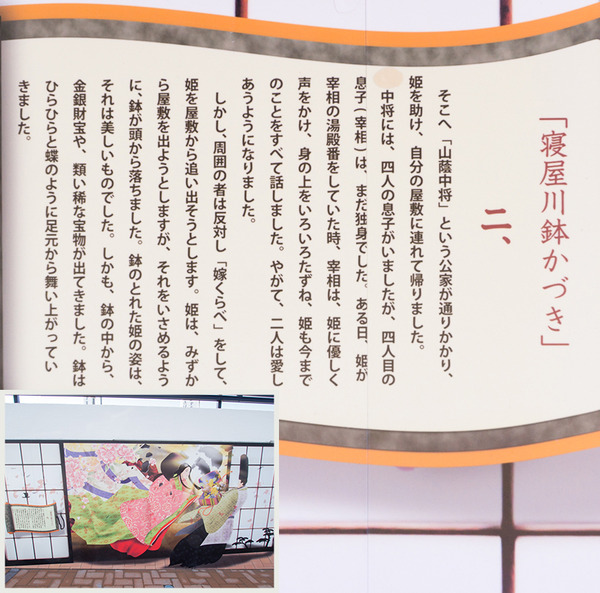 「寝屋川鉢かづき」
二、
そこへ「山蔭中将」という公家が通りかかり、
姫を助け、自分の屋敷に連れて帰りました。
中将には、四人の息子がいましたが、四人目の
息子（宰相）は、まだ独身でした。ある日、姫が
宰相の湯殿番をしていた時、宰相は、姫に優しく
声をかけ、身の上をいろいろたずね、姫も今まで
のことをすべて話しました。やがて、二人は愛し
あうようになりました。
しかし、周囲の者は反対し「嫁くらべ」をして、
姫を屋敷から追い出そうとします。姫は、みずか
ら屋敷を出ようとしますが、それをいさめるよう
に、鉢が頭から落ちました。鉢のとれた姫の姿は、
それは美しいものでした。しかも、鉢の中から、
金銀財宝や、類い稀な宝物が出てきました。鉢は
ひらひらと蝶のように足元から舞い上がってい
きました。